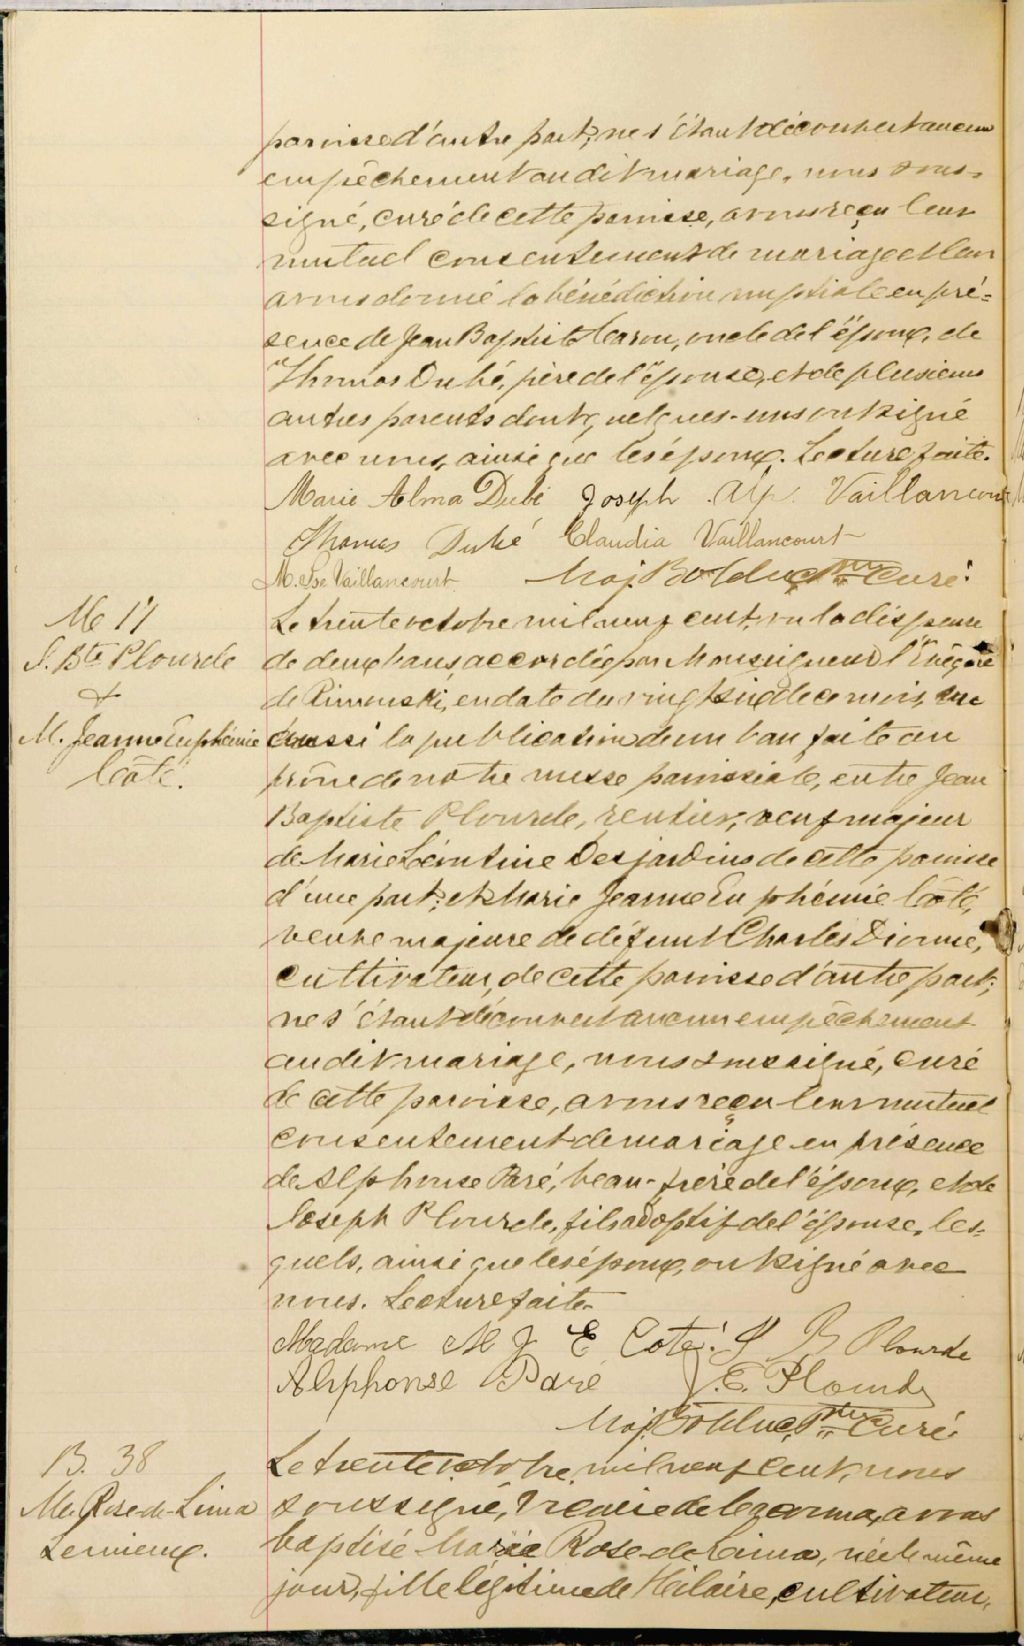 paroisse d'autre part; ne s'étant découvert aucun
empêchement au dit mariage, nous sous-
signé, curé de cette paroisse, avons reçu leur
mutuel consentement de mariage et leur
avons donné la bénédiction nuptiale en pré-
sence de Jean Baptiste Caron, oncle de l'époux, de
Thomas Dubé, père de l'épouse, et de plusieurs
autres parents dont quelques-uns ont signé
avec nous, ainsi que les époux. Lecture faite.
Marie Alma Dubé Joseph Alp. Vaillancourt
Thomas Dubé Claudia Vaillancourt
M. Vaillancourt Maj. Bolduc Ptre Curé.
M 17
J. Bte Plourde
&
M. Jeanne Euphémie
Côté.
Le trente octobre mil neuf cent, vu la dispense
de deux bans, accordée par Monseigneur l'Evêque
de Rimouski, en date du vingt six de ce mois, vu
aussi la publication d'un ban faite au
prône de notre messe paroissiale, entre Jean
Baptiste Plourde, rentier, veuf majeur
de Marie Léontine Desjardins de cette paroisse
d'une part; et Marie Jeanne Euphémie Côté,
veuve majeure de défunt Charles Dionne,
cultivateur, de cette paroisse d'autre part;
ne s'étant découvert aucun empêchement
au dit mariage, nous soussigné, curé
de cette paroisse, avons reçu leur mutuel
consentement de mariage en présence
de Alphonse Paré, beau-frère de l'époux, et de
Joseph Plourde, fils adoptif de l'épouse, les-
quels, ainsi que les époux, ont signé avec
nous. Lecture faite.
Madame M J E Coté. J B Plourde
Alphonse Paré J. E. Plourde
Maj. Bolduc, Ptre Curé.
B. 38
M. Rose-de-Lima
Lemieux.
Le trente octobre, mil neuf cent, nous
soussigné, Vicaire de avons
baptisé Marie Rose-de-Lima, née le même
jour, fille légitime de Hilaire, cultivateur,